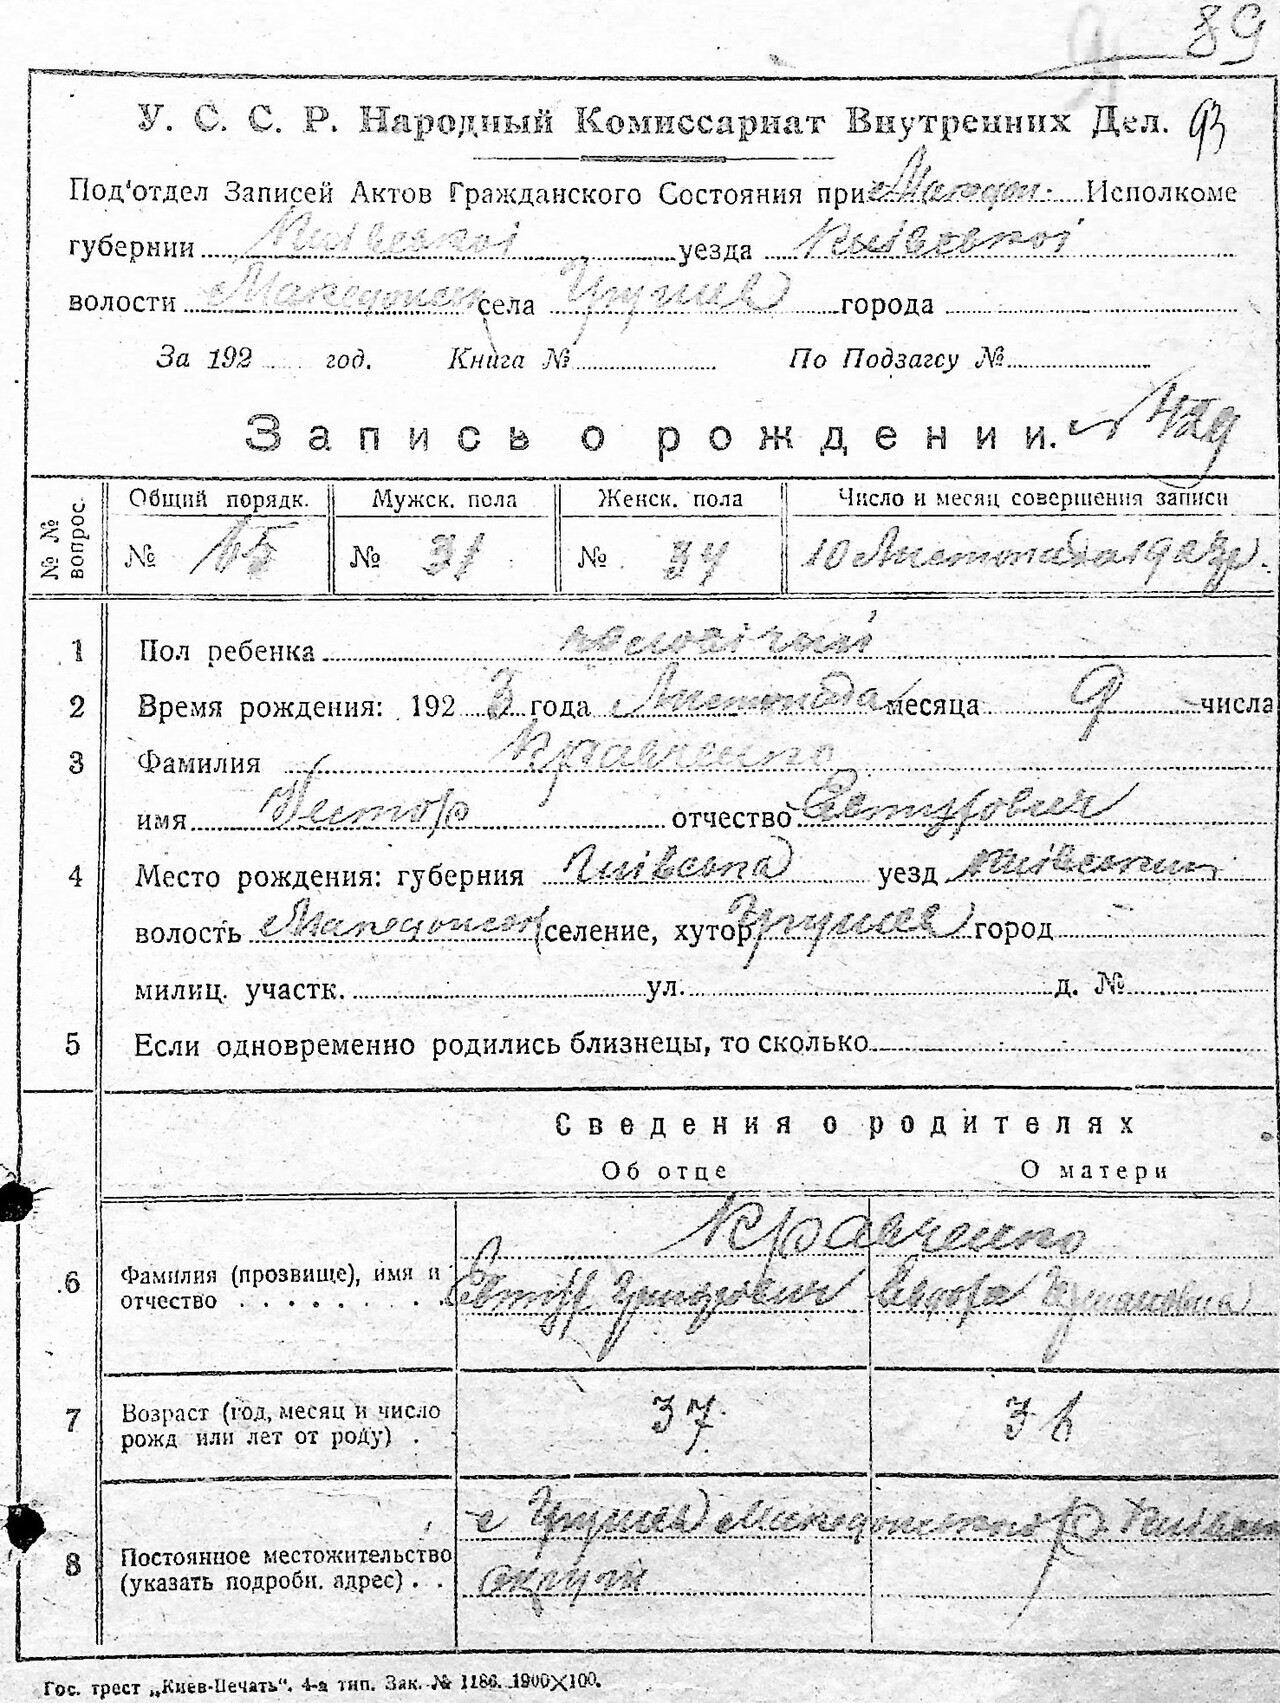 89
У. С. С. Р. Народный Комиссариат Внутренних Дел. 93
Под'отдел Записей Актов Гражданского Состояния при Македон. Исполкоме
губернии Київської уезда Київської
волости Македонськ села Грушев города
За 192 год. Книга № По Подзагсу №
Запись о рождении.
№ № вопрос. Общий порядк. Мужск. пола Женск. пола Число и месяц совершения записи
№ 65 № 31 № 34 10 Листопада 1923р.
1 Пол ребенка чоловічий
2 Время рождения: 1923 года Листопада месяца 9 числа
3 Фамилия Кравченко
имя Нестор отчество Євтухович
4 Место рождения: губерния Київська уезд Київський
волость Македонськ селение, хутор Грушев город
милиц. участк. ул. д. №
5 Если одновременно родились близнецы, то сколько
Сведения о родителях
Об отце О матери
Кравченко
6 Фамилия (прозвище), имя и отчество Євтух Григорович Євдоха
7 Возраст (год, месяц и число рожд или лет от роду) 37 36
8 Постоянное местожительство (указать подробн. адрес) с Грушев Македонського р. Київськ
округи
Гос. трест „Киев-Печать“. 4-а тип. Зак. № 1186. 1900×100.